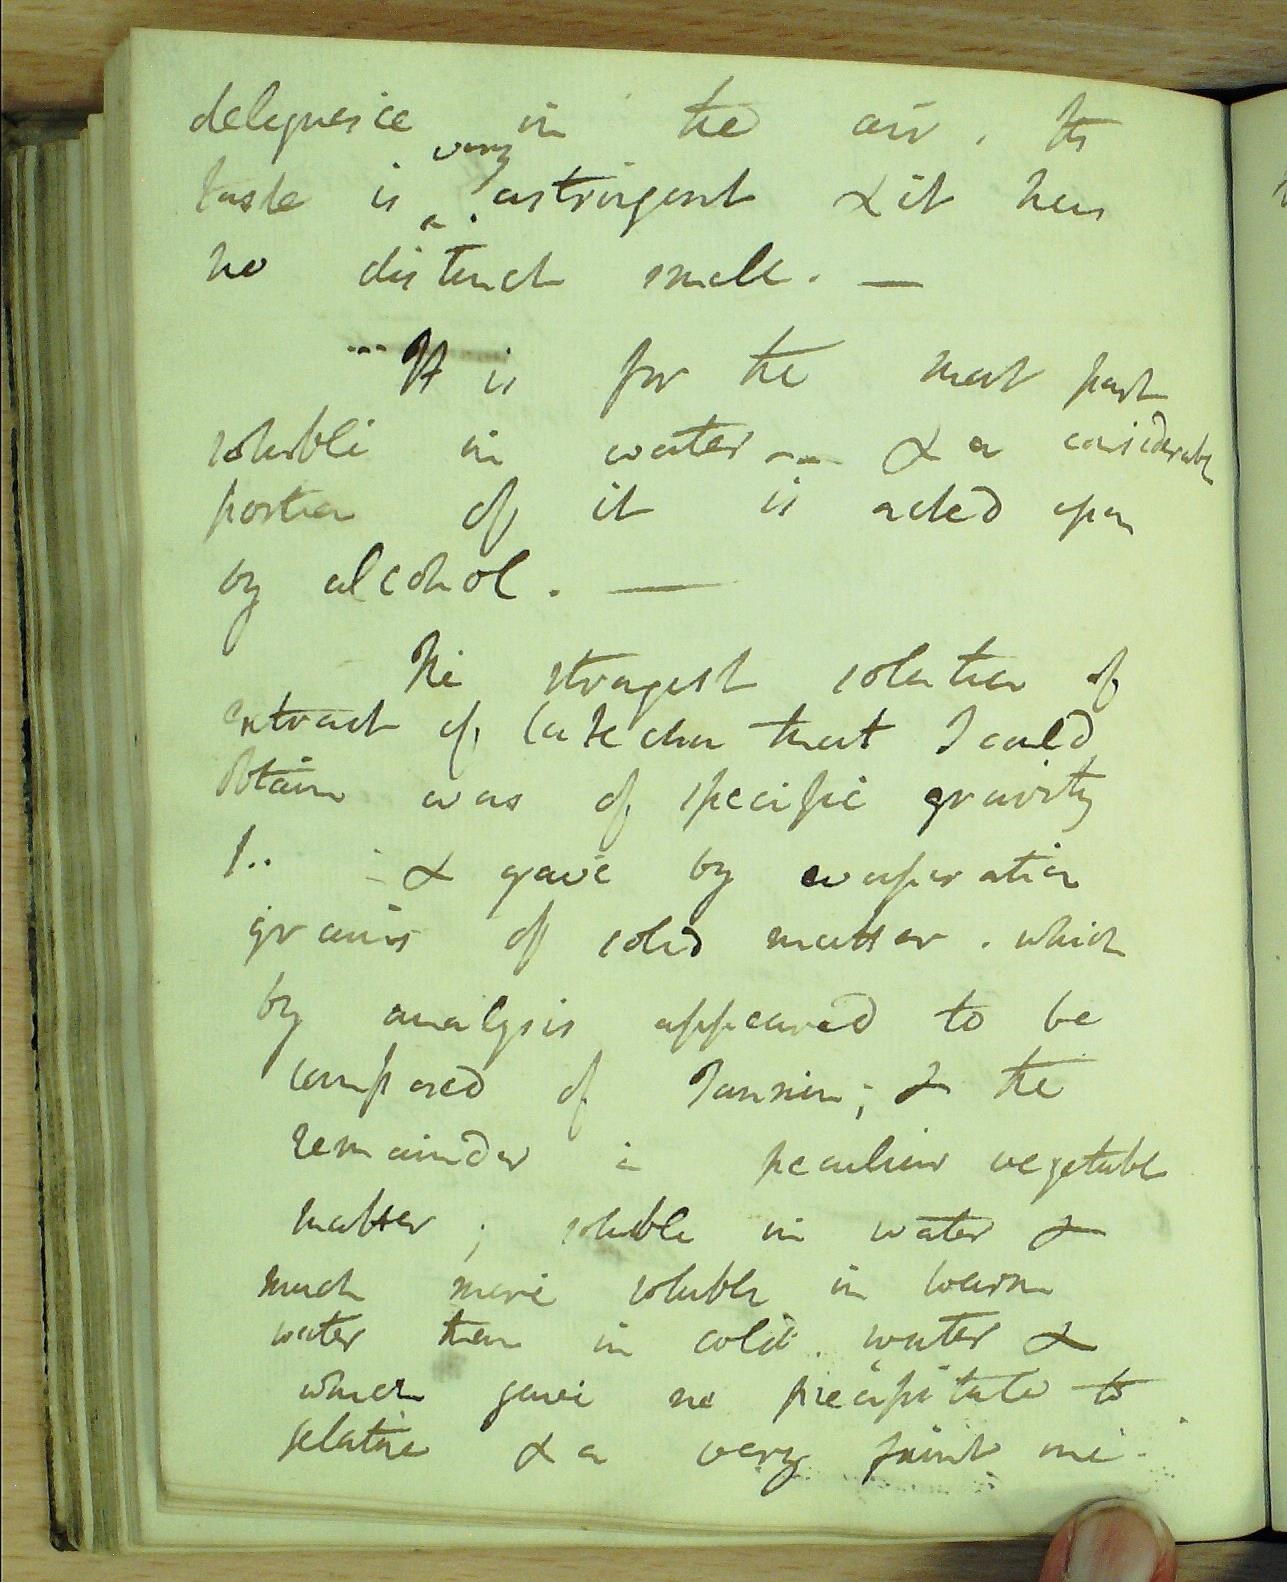 deliquesce in the air. Its
taste is very astringent & it has
no distinct smell. —
It is for the most part
soluble in water & a considerable
portion of it is acted upon
by alcohol. —
The strongest solution of
extract of Catechu that I could
obtain was of specific gravity
1.. & gave by evaporation
grains of solid matter. which
by analysis appeared to be
composed of Tannin; & the
remainder a peculiar vegetable
matter; soluble in water &
much more soluble in warm
water than in cold. water &
which gave no precipitate to
gelatine & a very faint one